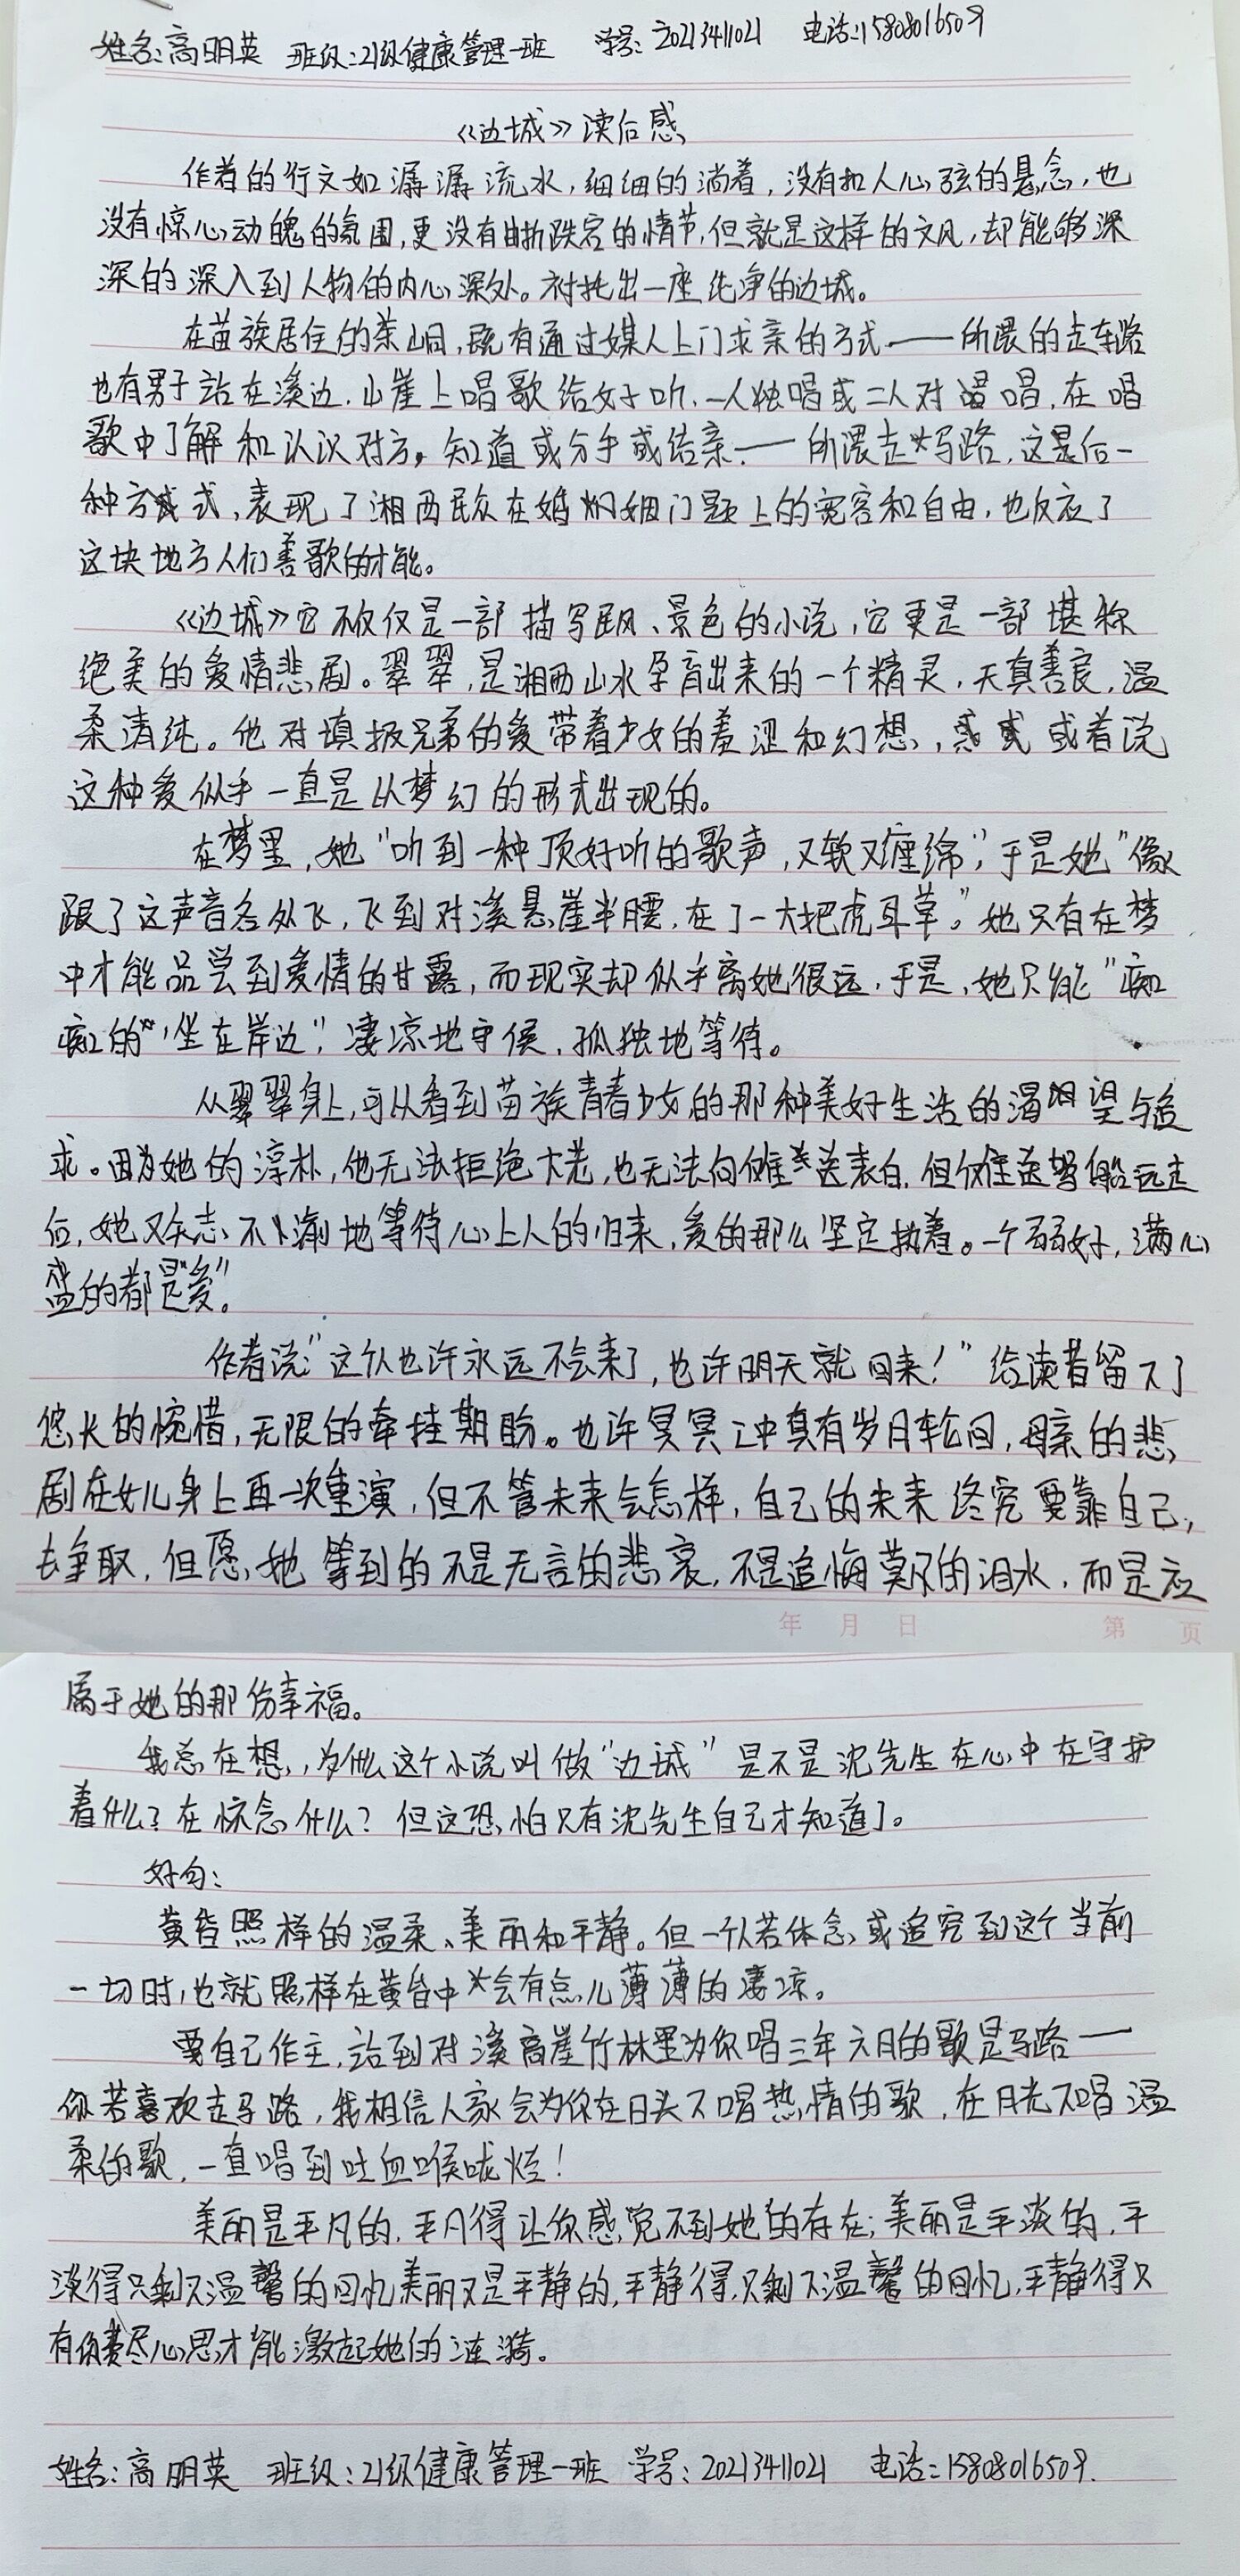 姓名:高明英 班级:21级健康管理一班 学号:2021341021 电话:15808016509
《边城》读后感
作者的行文如潺潺流水,细细的淌着,没有扣人心弦的悬念,也
没有惊心动魄的氛围,更没有曲折跌宕的情节,但就是这样的文风,却能够深
深的深入到人物的内心深处。衬托出一座纯净的边城。
在苗族居住的茶峒,既有通过媒人上门求亲的方式——所谓的走车路
也有男子站在溪边.山崖上唱歌给女子听.一人独唱或二人对唱,在唱
歌中了解和认识对方。知道或分手或结亲.——所谓走马路,这是后一
种方式,表现了湘西民众在婚姻问题上的宽容和自由,也反应了
这块地方人们善歌的才能。
《边城》它不仅仅是一部描写民风、景色的小说,它更是一部堪称
绝美的爱情悲剧。翠翠,是湘西山水孕育出来的一个精灵,天真善良,温
柔清纯。他对填报兄弟的爱带着少女的羞涩和幻想,或者说
这种爱似乎一直是以梦幻的形式出现的。
在梦里,她"听到一种顶好听的歌声,又软又缠绵",于是她"像
跟了这声音各处飞,飞到对溪悬崖半腰,在了一大把虎耳草。"她只有在梦
中才能品尝到爱情的甘露,而现实却似乎离她很远,于是,她只能"痴
痴的"'坐在岸边",凄凉地守侯,孤独地等待。
从翠翠身上,可从看到苗族青春少女的那种美好生活的渴望与追
求。因为她的淳朴,他无法拒绝大老,也无法向傩送表白,但傩送驾船远走
后,她又矢志不渝地等待心上人的归来,爱的那么坚定执着。一个弱女子,满心
盛的都是"爱"。
作者说:"这个人也许永远不会来了,也许明天就回来!"给读者留下了
悠长的惋惜,无限的牵挂期盼。也许冥冥之中真有岁月轮回,母亲的悲
剧在女儿身上再一次重演,但不管未来会怎样,自己的未来终究要靠自己,
去争取,但愿,她等到的不是无言的悲哀,不是追悔莫及的泪水,而是应
属于她的那份幸福。
我总在想,为什么这个小说叫做"边城"是不是沈先生在心中在守护
着什么?在怀念什么?但这恐怕只有沈先生自己才知道了。
好句:
黄昏照样的温柔、美丽和平静。但一个人若体念或追究到这个当前
一切时,也就照样在黄昏中会有点儿薄薄的凄凉。
要自己作主,站到对溪高崖竹林里为你唱三年六月的歌是马路——
你若喜欢走马路,我相信人家会为你在日头下唱热情的歌,在月光下唱温
柔的歌,一直唱到吐血喉咙烂!
美丽是平凡的,平凡得让你感觉不到她的存在;美丽是平淡的,平
淡得只剩下温馨的回忆,美丽又是平静的,平静得只剩下温馨的回忆,平静得只
有你费尽心思才能激起她的涟漪。
姓名:高明英 班级:21级健康管理一班 学号:2021341021 电话:15808016509.
年 月 日 第 页